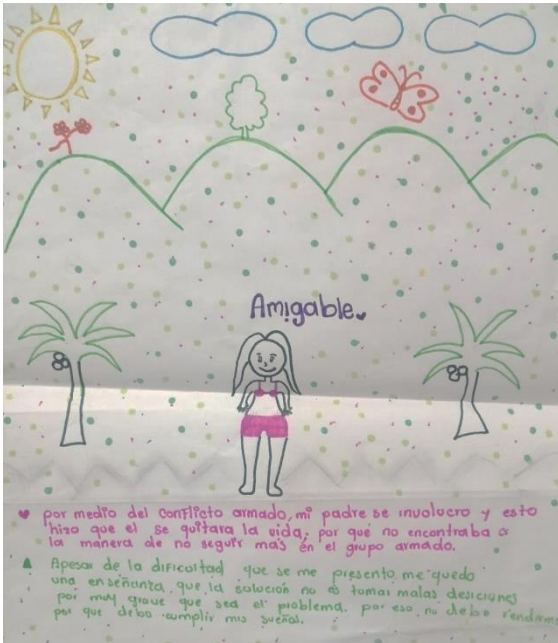 Amigable
por medio del conflicto armado, mi padre se involucro y esto
hizo que el se quitara la vida, por qué no encontraba
la manera de no seguir mas en el grupo armado.
Apesar de la dificoltad que se me presento me quedo
una enseñanza que la solución no es tomar malas desiciones
por muy grave que sea el problema. por eso no debo rendirme
por que debo cumplir mis sueños.